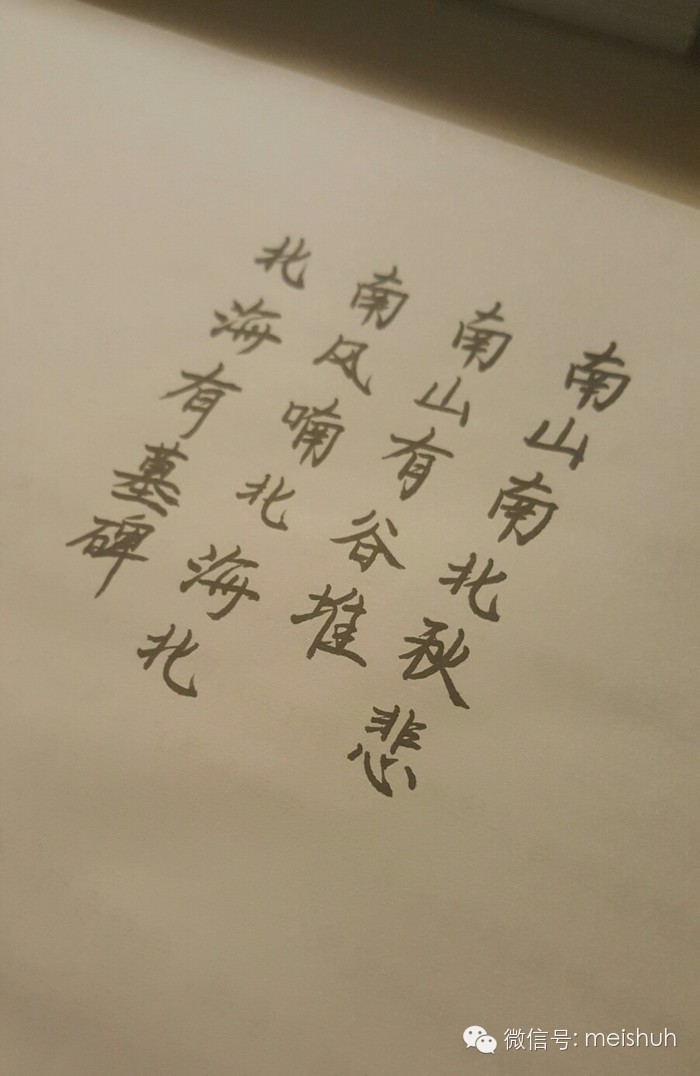 南山南北秋悲
南山有谷堆
南风喃北海北
北海有墓碑
微信号: meishuh